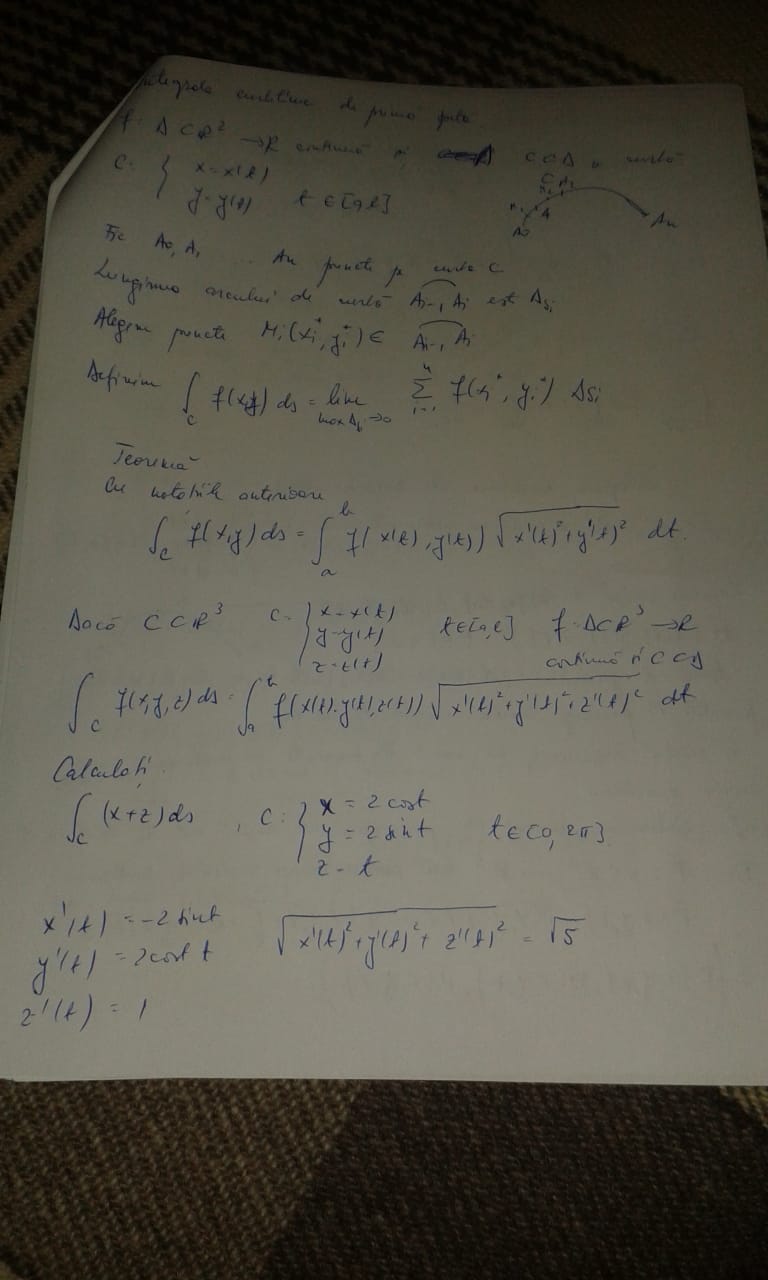 Integrala curbilinie de prima speta
f: D ⊂ R² → R continuă și C ⊂ D o curbă
C: { x = x(t)
y = y(t) t ∈ [a, b]
A₀ A₁ C An
Fie A₀, A₁ ... An puncte pe curba C
Lungimea arcului de curbă Ai-1, Ai este Δsi
Alegem puncte Mi(xi*, yi*) ∈ Ai-1, Ai
Definim ∫_C f(x,y) ds = lim_{max Δi→0} Σ_{i=1}^{n} f(xi*, yi*) Δsi
Teoremă
Cu notatiile anterioare
∫_C f(x,y) ds = ∫_a^b f(x(t), y(t)) √(x'(t)² + y'(t)²) dt.
Dacă C ⊂ R³ C: { x = x(t)
y = y(t)
z = z(t) t ∈ [a, b] f: D ⊂ R³ → R
continuă și C ⊂ D
∫_C f(x,y,z) ds = ∫_a^b f(x(t), y(t), z(t)) √(x'(t)² + y'(t)² + z'(t)²) dt
Calculați
∫_C (x+z) ds , C: { x = 2 cos t
y = 2 sin t t ∈ [0, 2π]
z = t
x'(t) = -2 sin t
y'(t) = 2 cos t t √(x'(t)² + y'(t)² + z'(t)²) = √5
z'(t) = 1